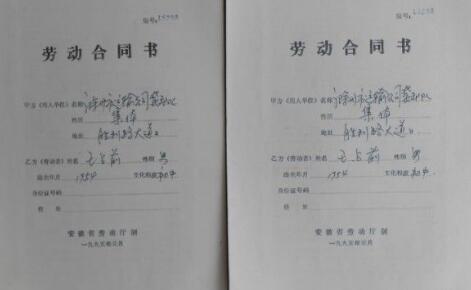 编号:
劳动合同书
甲方（用人单位）名称 滁州市运输公司
性质 集体
地址 胜利路大道口
乙方（劳动者）姓名 王 前 性别 男
出生年月 1954 文化程度 初中
身份证号码
住址
安徽省劳动厅制
一九九五年元月
编号:
劳动合同书
甲方（用人单位）名称 滁州市运输公司
性质 集体
地址 胜利路大道口
乙方（劳动者）姓名 王 前 性别 男
出生年月 1954 文化程度 初中
身份证号码
住址
安徽省劳动厅制
一九九五年元月